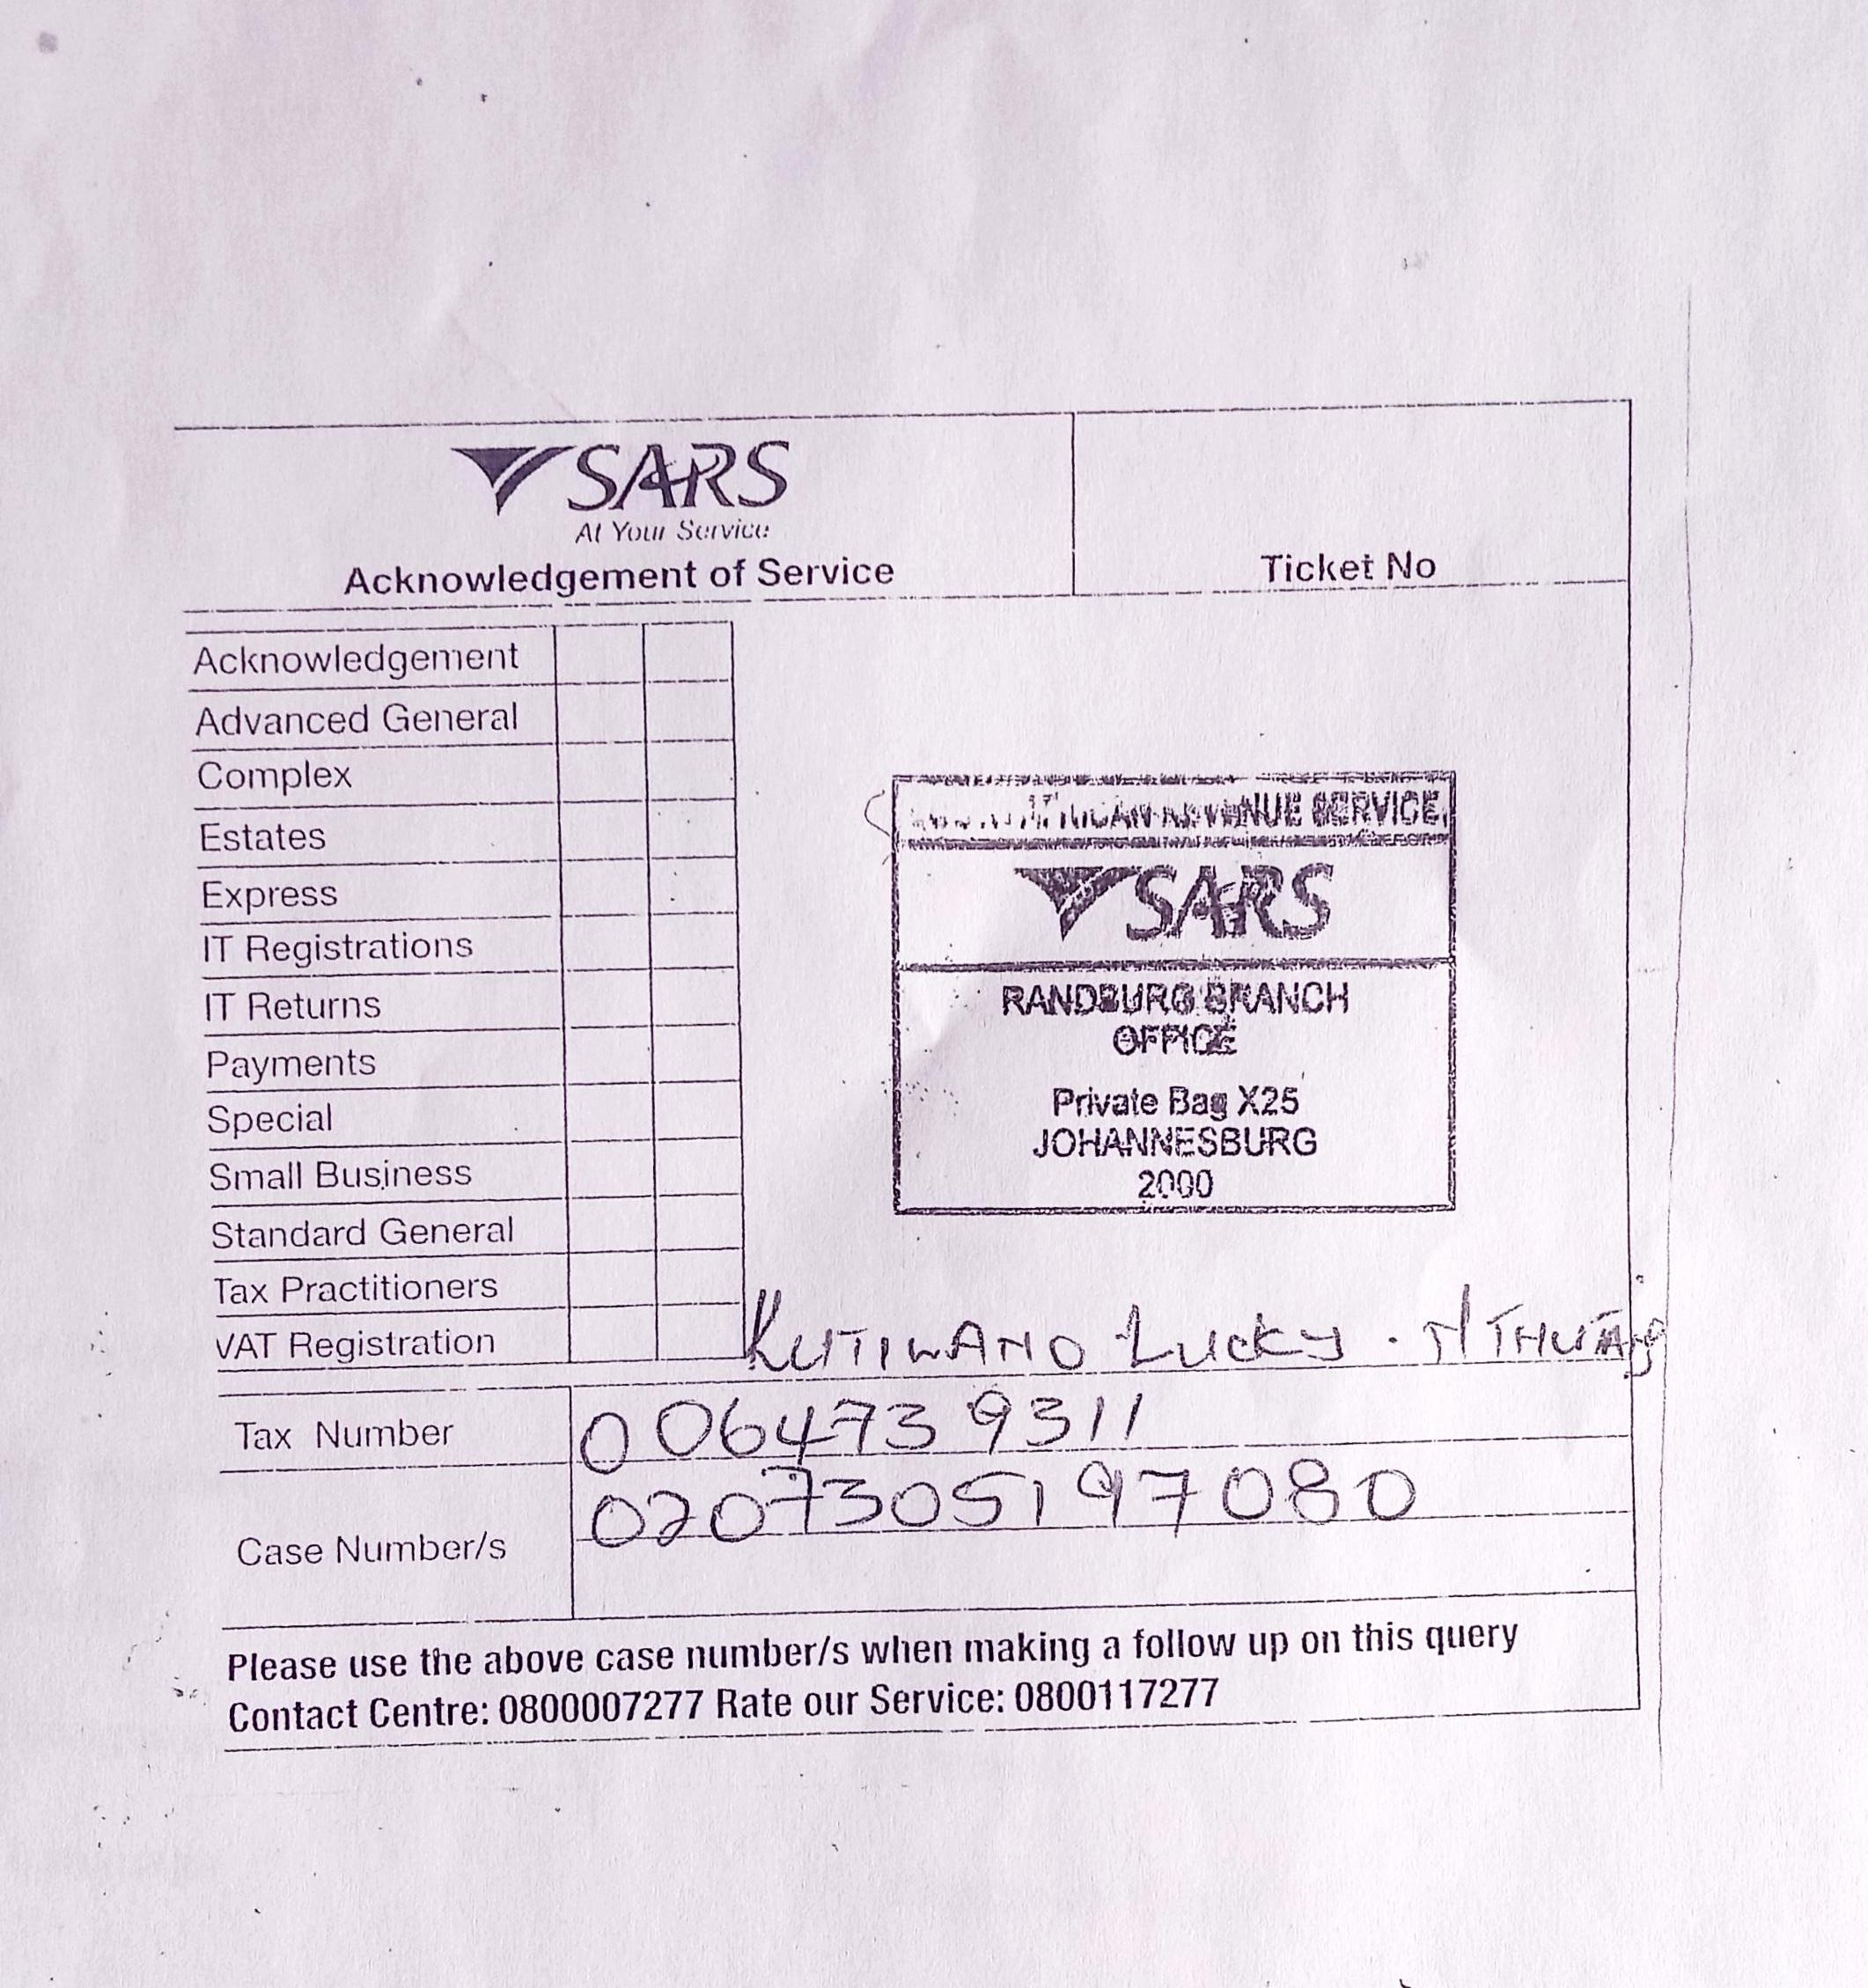 SARS
At Your Service
Acknowledgement of Service
Ticket No
Acknowledgement
Advanced General
Complex
Estates
Express
IT Registrations
IT Returns
Payments
Special
Small Business
Standard General
Tax Practitioners
VAT Registration
AFRICAN REVENUE SERVICE
SARS
RANDBURG BRANCH
OFFICE
Private Bag X25
JOHANNESBURG
2000
Lucky
Tax Number 0064739311
0207305197080
Case Number/s
Please use the above case number/s when making a follow up on this query
Contact Centre: 0800007277 Rate our Service: 0800117277